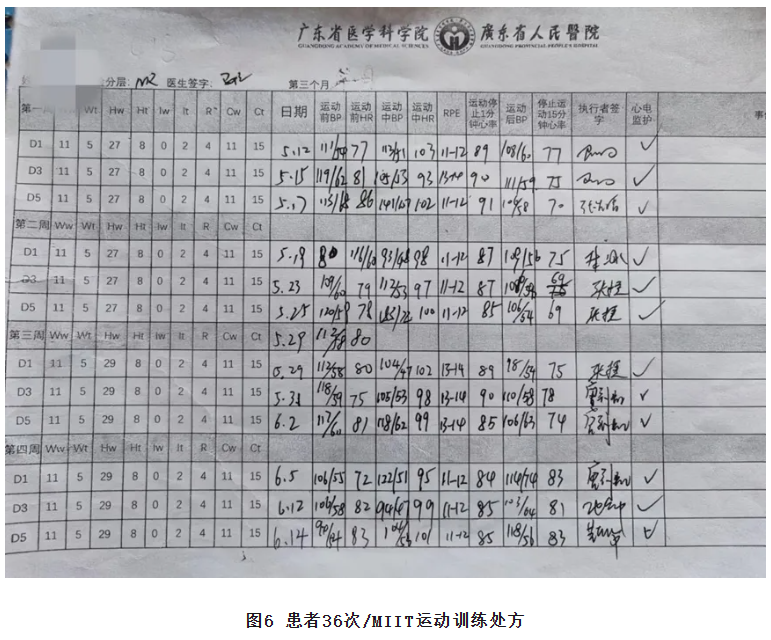 广东省医学科学院 廣東省人民醫院
GUANGDONG ACADEMY OF MEDICAL SCIENCES GUANGDONG PROVINCIAL PEOPLE'S HOSPITAL
分层: 医生签字: 第三个月
第一周 Wt Hw Ht Iw It R Cw Ct 日期 运动前BP 运动前HR 运动中BP 运动中HR RPE 运动停止1分钟心率 运动后BP 停止运动15分钟心率 执行者签字 心电监护
D1 11 5 27 8 0 2 4 11 15 5.12 77 103 11-12 89 108/60 77 ✓
D3 11 5 27 8 0 2 4 11 15 5.15 119/62 81 93 13-14 90 111/59 75 ✓
D5 11 5 27 8 0 2 4 11 15 5.17 86 102 11-12 91 70 ✓
第二周 Ww Wt Hw Ht Iw It R Cw Ct
D1 11 5 27 8 0 2 4 11 15 5.19 116/60 98 11-12 87 109/56 75 ✓
D3 11 5 27 8 0 2 4 11 15 5.23 109/60 79 112/53 97 11-12 87 69 ✓
D5 11 5 27 8 0 2 4 11 15 5.25 120/59 78 100 11-12 85 69 ✓
第三周 Ww Wt Hw Ht Iw It R Cw Ct 5.29 80
D1 11 5 29 8 0 2 4 11 15 5.29 112/58 80 104/47 102 13-14 89 98/54 75 ✓
D3 11 5 29 8 0 2 4 11 15 5.31 118/59 75 105/53 98 13-14 90 110/58 78 ✓
D5 11 5 29 8 0 2 4 11 15 6.2 81 118/62 99 13-14 85 106/63 74 ✓
第四周 Ww Wt Hw Ht Iw It R Cw Ct
D1 11 5 29 8 0 2 4 11 15 6.5 106/55 72 122/51 95 11-12 84 114/74 83 ✓
D3 11 5 29 8 0 2 4 11 15 6.12 106/58 82 94/47 99 11-12 85 103/64 81 ✓
D5 11 5 29 8 0 2 4 11 15 6.14 83 101 11-12 85 118/56 83 ✓
图6 患者36次/MIIT运动训练处方